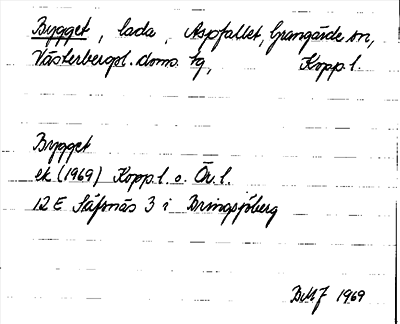 Bygget, lada, Aspfallet, Grangärde sn,
Västerbergsl. doms. tg, Kopp. l.
Bygget
ek (1969) Kopp. l. o. Ör. l.
12 E Säfsnäs 3 i Bringsjöberg
1969